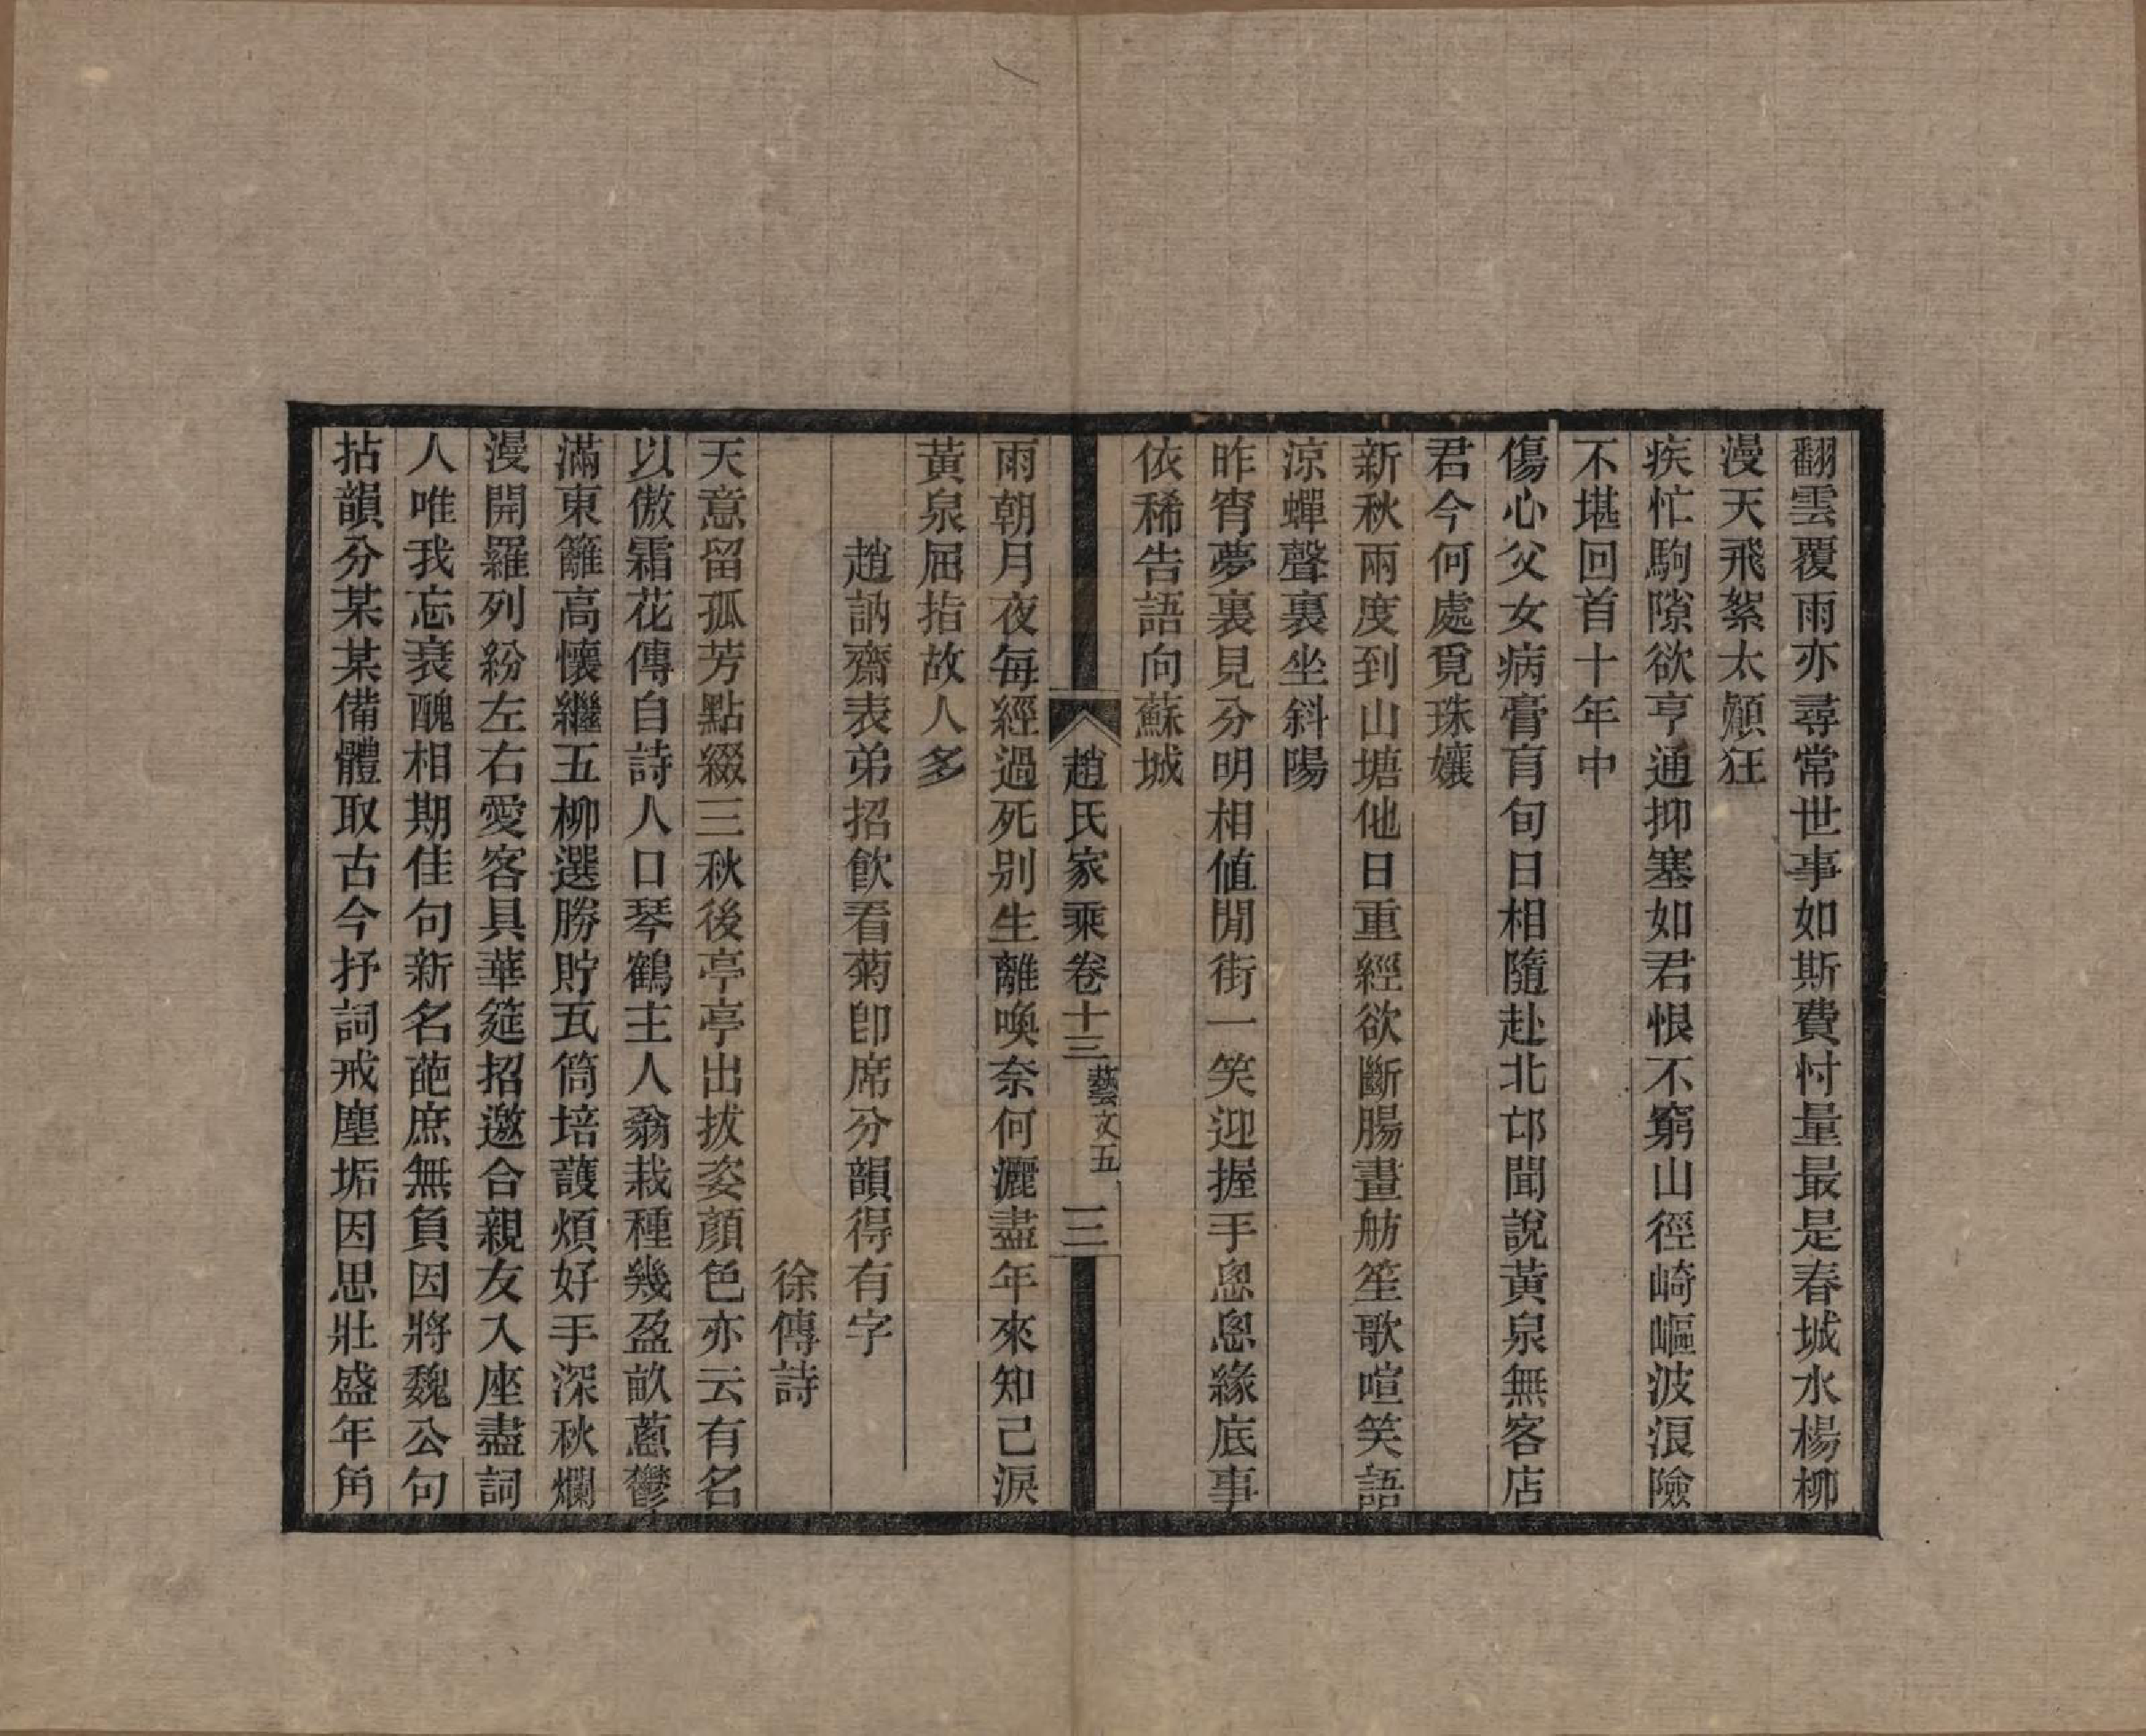 翻雲覆雨亦尋常世事如斯費忖量最是春城水楊柳
漫天飛絮太顛狂
疾忙駒隙欲亨通抑塞如君恨不窮山徑崎嶇波浪險
不堪回首十年中
傷心父女病膏肓旬日相隨赴北邙聞說黃泉無客店
君今何處覓珠孃
新秋兩度到山塘他日重經欲斷腸畫舫笙歌喧笑語
涼蟬聲裏坐斜陽
昨宵夢裏見分明相値閒街一笑迎握手悤悤緣底事
依稀告語向蘇城
趙氏家乘卷十三 藝文五 三
雨朝月夜每經過死別生離喚奈何灑盡年來知己淚
黃泉屈指故人多
趙訥齋表弟招飮看菊卽席分韻得有字
徐傳詩
天意留孤芳點綴三秋後亭亭出拔姿顏色亦云有名
以傲霜花傳自詩人口琴鶴主人翁栽種幾盈畝蔥鬱
滿東籬高懷繼五柳選勝貯瓦筒培護煩好手深秋爛
漫開羅列紛左右愛客具華筵招邀合親友入座盡詞
人唯我忘衰醜相期佳句新名葩庶無負因將魏公句
拈韻分某某備體取古今抒詞戒塵垢因思壯盛年角